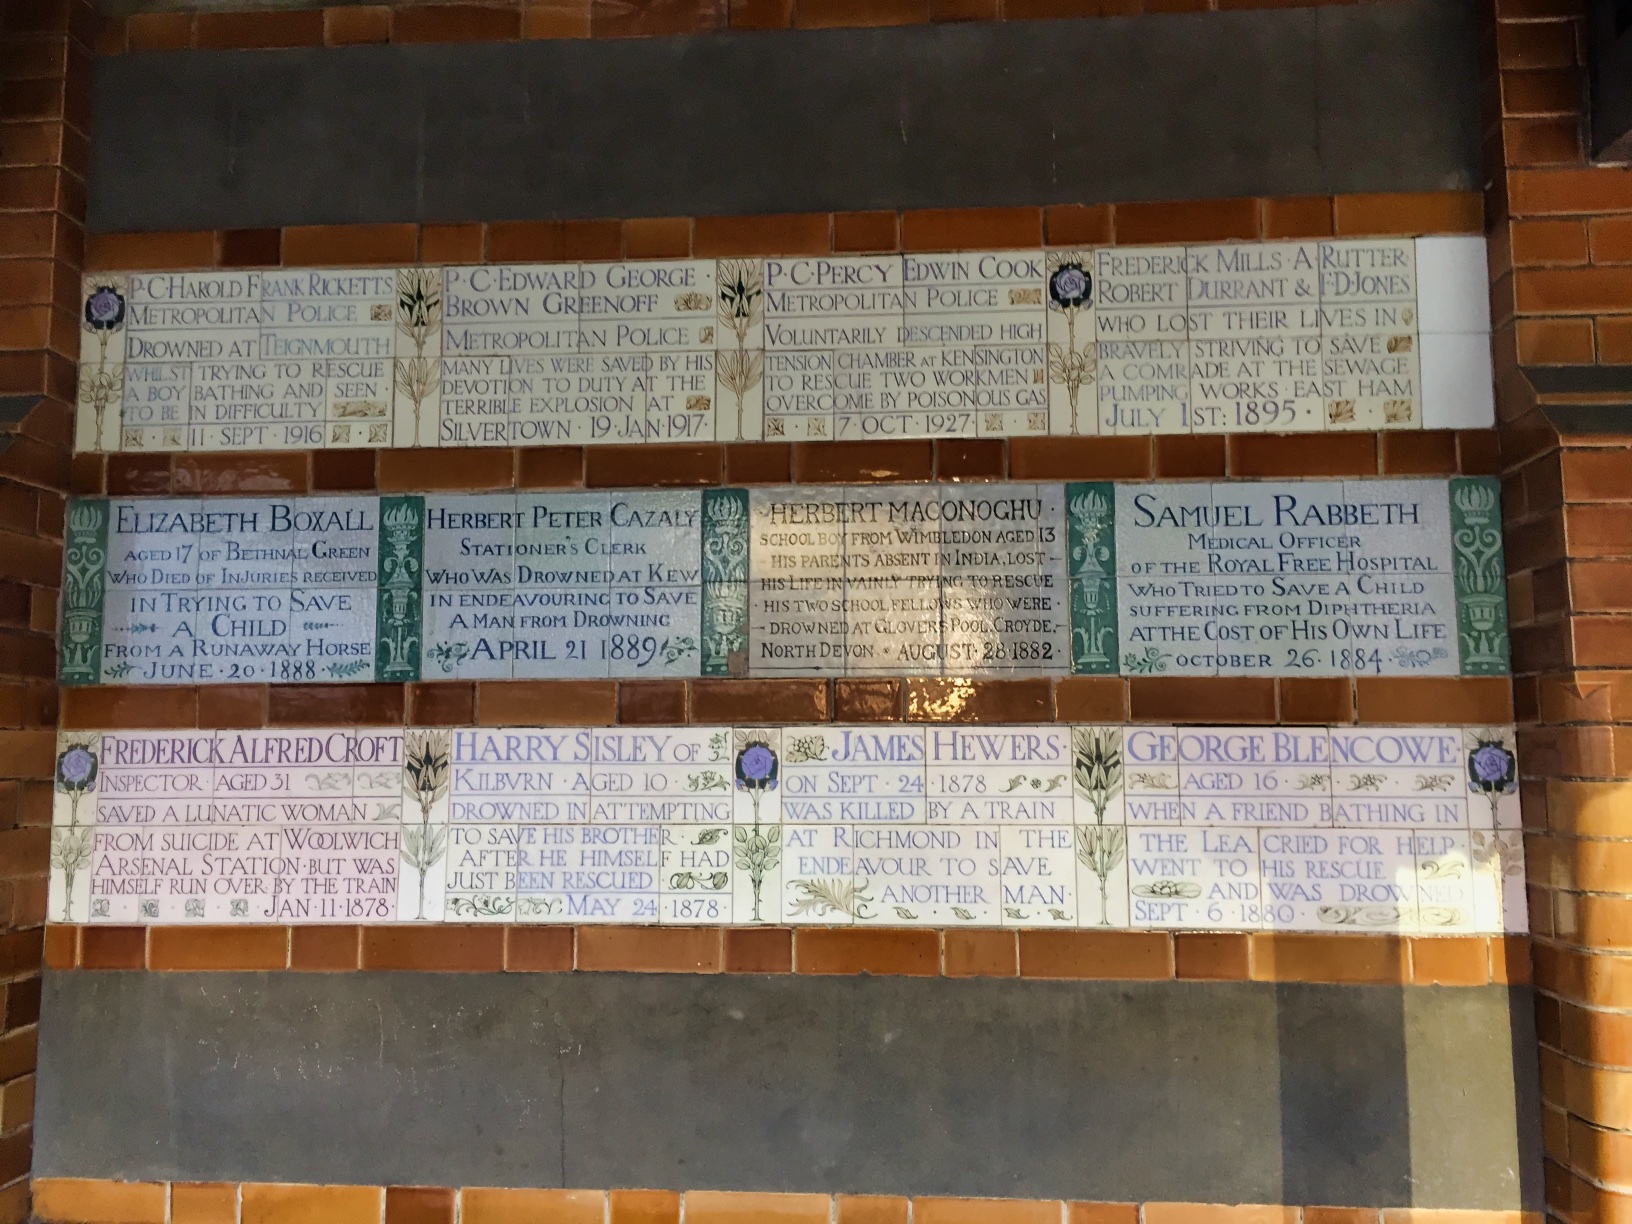 P·C·HAROLD FRANK RICKETTS
METROPOLITAN POLICE
DROWNED AT TEIGNMOUTH
WHILST TRYING TO RESCUE
A BOY BATHING AND SEEN
TO BE IN DIFFICULTY
11 · SEPT · 1916
P·C·EDWARD GEORGE ·
BROWN GREENOFF
METROPOLITAN POLICE
MANY LIVES WERE SAVED BY HIS
DEVOTION TO DUTY AT THE
TERRIBLE EXPLOSION AT
SILVERTOWN · 19·JAN·1917·
P·C·PERCY EDWIN COOK
METROPOLITAN POLICE
VOLUNTARILY DESCENDED HIGH
TENSION CHAMBER AT KENSINGTON
TO RESCUE TWO WORKMEN
OVERCOME BY POISONOUS GAS
7 · OCT · 1927 ·
FREDERICK MILLS · A RUTTER·
ROBERT DURRANT & F·D·JONES
WHO LOST THEIR LIVES IN
BRAVELY STRIVING TO SAVE
A COMRADE AT THE SEWAGE
PUMPING WORKS · EAST HAM
JULY 1ST: 1895 ·
ELIZABETH BOXALL
AGED 17 OF BETHNAL GREEN
WHO DIED OF INJURIES RECEIVED
IN TRYING TO SAVE
A CHILD
FROM A RUNAWAY HORSE
JUNE · 20 · 1888 ·
HERBERT PETER CAZALY
STATIONER'S CLERK
WHO WAS DROWNED AT KEW
IN ENDEAVOURING TO SAVE
A MAN FROM DROWNING
APRIL 21 1889
·HERBERT MACONOGHU ·
SCHOOL BOY FROM WIMBLEDON AGED 13
HIS PARENTS ABSENT IN INDIA, LOST
HIS LIFE IN VAINLY TRYING TO RESCUE
· HIS TWO SCHOOL FELLOWS WHO WERE ·
DROWNED AT GLOVERS POOL, CROYDE,
NORTH DEVON · AUGUST · 28·1882 ·
SAMUEL RABBETH
MEDICAL OFFICER
OF THE ROYAL FREE HOSPITAL
WHO TRIED TO SAVE A CHILD
SUFFERING FROM DIPHTHERIA
AT THE COST OF HIS OWN LIFE
OCTOBER 26 · 1884 ·
FREDERICK ALFRED CROFT
INSPECTOR · AGED 31
SAVED A LUNATIC WOMAN
FROM SUICIDE AT WOOLWICH
ARSENAL STATION · BUT WAS
HIMSELF RUN OVER · BY THE TRAIN
JAN · 11 · 1878 ·
HARRY SISLEY OF
KILBVRN · AGED 10 ·
DROWNED IN ATTEMPTING
TO SAVE HIS BROTHER ·
AFTER HE HIMSELF HAD
JUST BEEN RESCUED
MAY 24 · 1878 ·
JAMES HEWERS ·
ON SEPT · 24 · 1878
WAS KILLED BY A TRAIN
AT RICHMOND IN THE
ENDEAVOUR TO SAVE
ANOTHER MAN ·
GEORGE BLENCOWE ·
AGED 16 ·
WHEN A FRIEND BATHING IN
THE LEA CRIED FOR HELP ·
WENT TO HIS RESCUE
AND WAS DROWNED
SEPT · 6 · 1880 ·